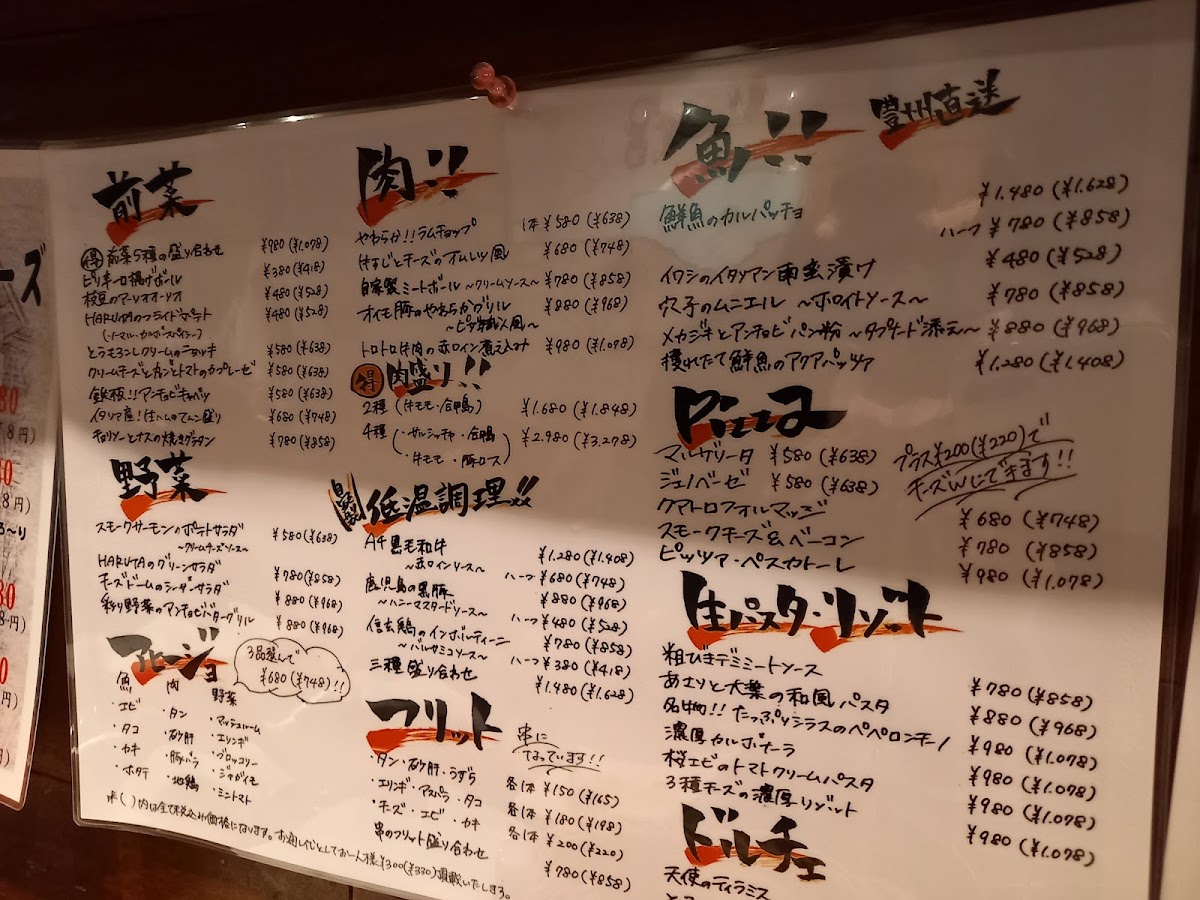 前菜
得 前菜5種の盛り合わせ ¥980(¥1.078)
ピリ辛一口揚げボール ¥380(¥418)
枝豆のアーリオオーリオ ¥480(¥528)
HARUTAのフライドポテト ¥480(¥528)
とうもろこしクリームのニョッキ ¥580(¥638)
クリームチーズと ¥580(¥638)
鉄板!!アンチョビキャベツ ¥580(¥638)
イタリア産!生ハムの ¥680(¥748)
チョリソーとナスの焼きグラタン ¥780(¥858)
野菜
スモークサーモンのポテトサラダ ¥580(¥638)
~クリームチーズソース~
HARUTAのグリーンサラダ ¥780(¥858)
チーズドームのシーザーサラダ ¥880(¥968)
彩り野菜のアンチョビバターグリル ¥880(¥968)
アヒージョ
3品選んで
¥680(¥748)!!
魚 肉 野菜
・エビ ・タン ・マッシュルーム
・タコ ・砂肝 ・エリンギ
・カキ ・豚バラ ・ブロッコリー
・ホタテ ・地鶏 ・ジャガイモ
・ミニトマト
※( )内は全て税込み価格になります。お通し代としてお一人様¥300(¥330)頂戴いたします。
肉!!
やわらか!!ラムチョップ 1本¥580(¥638)
牛すじとチーズのオムレツ風 ¥680(¥748)
自家製ミートボール ~クリームソース~ ¥780(¥858)
オイモ豚のやわらかグリル ¥880(¥968)
~ピザ職人風~
トロトロ牛肉の赤ワイン煮込み ¥980(¥1.078)
得 肉盛り!!
2種(牛モモ・合鴨) ¥1.680(¥1.848)
4種(・サルシッチャ・合鴨 ¥2.980(¥3.278)
・牛モモ・豚ロス)
低温調理!!
A4黒毛和牛 ¥1.280(¥1.408)
~赤ワインソース~ ハーフ¥680(¥748)
鹿児島の黒豚 ¥880(¥968)
~ハニーマスタードソース~ ハーフ¥480(¥528)
信玄鶏のインボルティーニ ¥780(¥858)
~バルサミコソース~ ハーフ¥380(¥418)
三種盛り合わせ ¥1.480(¥1.628)
フリット
串に
なっています!!
・タン・砂肝・うずら 各1本 ¥150(¥165)
・エリンギ・アスパラ・タコ 各1本 ¥180(¥198)
・チーズ・エビ・カキ 各1本 ¥200(¥220)
串のフリット盛り合わせ ¥780(¥858)
魚!! 豊州直送
鮮魚のカルパッチョ ¥1.480(¥1.628)
ハーフ ¥780(¥858)
イワシのイタリアン南蛮漬け ¥480(¥528)
穴子のムニエル ~ホワイトソース~ ¥780(¥858)
メカジキとアンチョビパン粉 ~タプナード添え~ ¥880(¥968)
穫れたて鮮魚のアクアパッツァ ¥1.280(¥1.408)
Pizza
マルゲリータ ¥580(¥638)
ジェノベーゼ ¥580(¥638)
プラス¥200(¥220)で
チーズWにできます!!
クアトロフォルマッジ ¥680(¥748)
スモークチーズ&ベーコン ¥780(¥858)
ピッツァ・ペスカトーレ ¥980(¥1.078)
生パスタ・リゾット
粗びきデミミートソース ¥780(¥858)
あさりと大葉の和風パスタ ¥880(¥968)
名物!!たっぷりシラスのペペロンチーノ ¥980(¥1.078)
濃厚カルボナーラ ¥980(¥1.078)
桜エビのトマトクリームパスタ ¥980(¥1.078)
3種チーズの濃厚リゾット ¥980(¥1.078)
ドルチェ
天使のティラミス